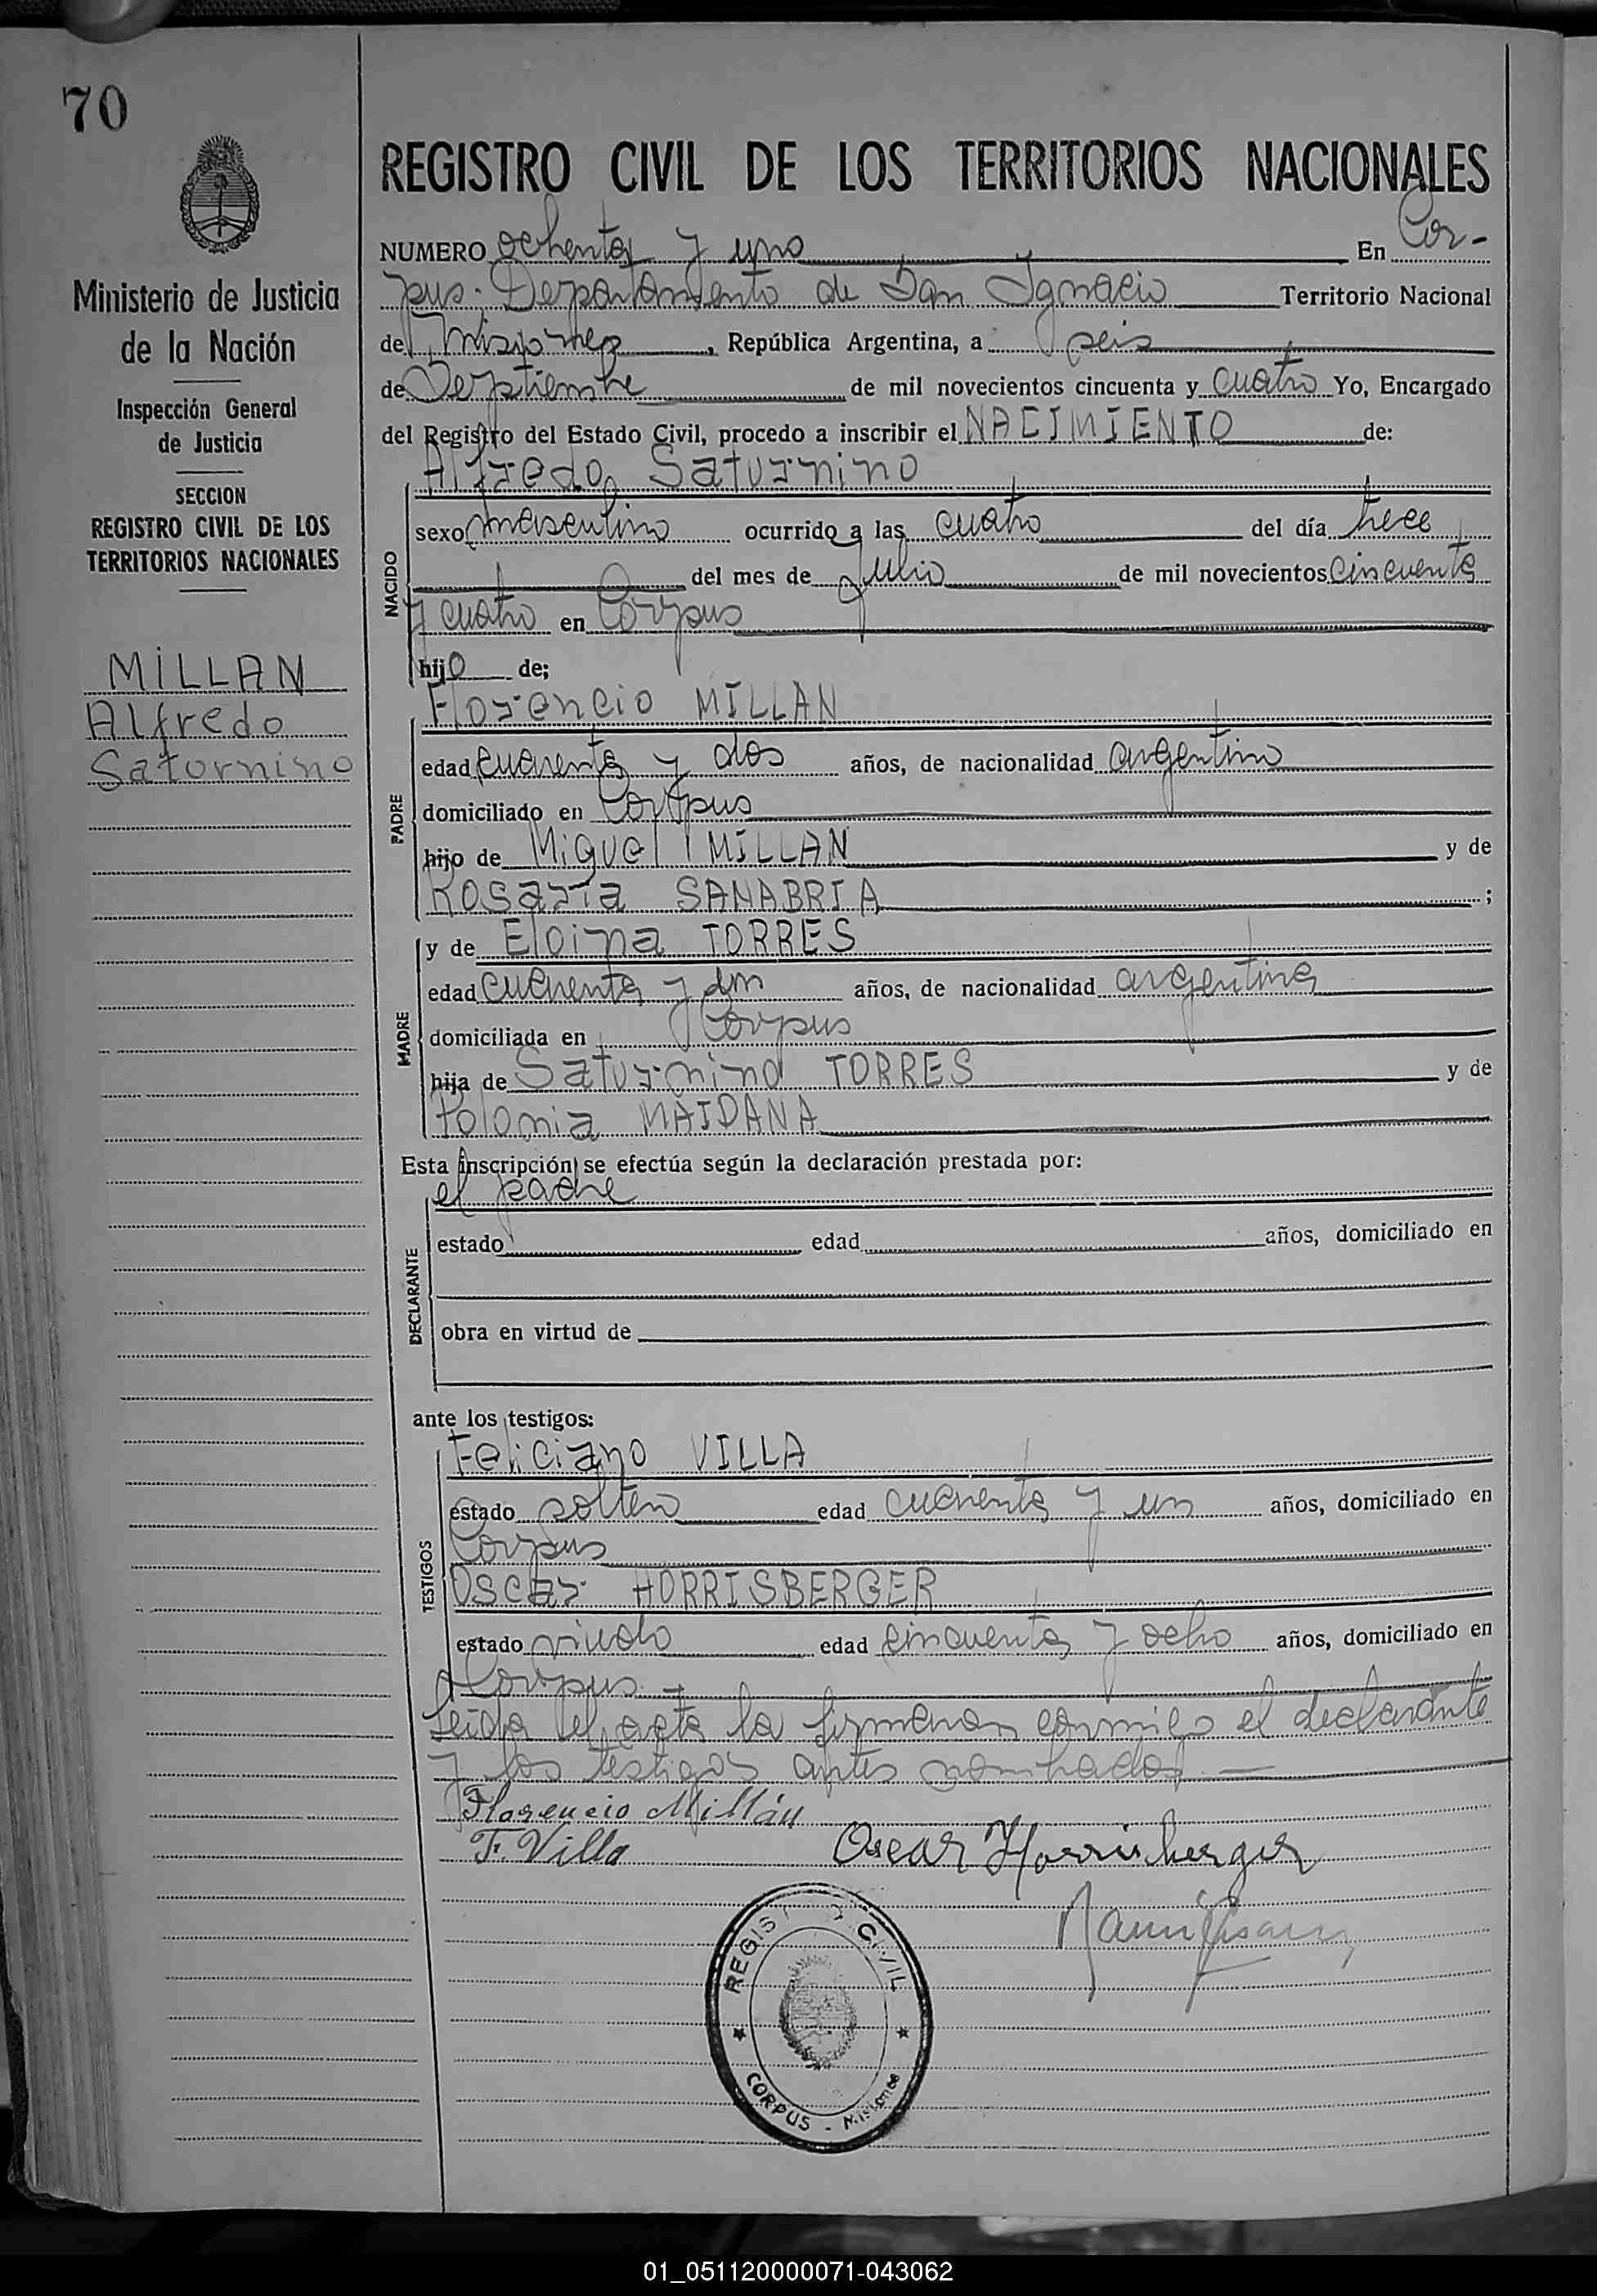 70
REGISTRO CIVIL DE LOS TERRITORIOS NACIONALES
Ministerio de Justicia
de la Nación
Inspección General
de Justicia
SECCION
REGISTRO CIVIL DE LOS
TERRITORIOS NACIONALES
MILLAN
Alfredo
Saturnino
NUMERO ochenta y uno En Cor-
pus. Departamento de San Ignacio Territorio Nacional
de Misiones, República Argentina, a seis
de Septiembre de mil novecientos cincuenta y cuatro Yo, Encargado
del Registro del Estado Civil, procedo a inscribir el NACIMIENTO de:
Alfredo Saturnino
NACIDO
sexo masculino ocurrido a las cuatro del día trece
del mes de Julio de mil novecientos cincuenta
y cuatro en Corpus
hijo de;
Florencio MILLAN
PADRE
edad cuarenta y dos años, de nacionalidad argentino
domiciliado en Corpus
hijo de Miguel MILLAN y de
Rosaria SANABRIA ;
MADRE
y de Eloina TORRES
edad cuarenta y dos años, de nacionalidad argentina
domiciliada en Corpus
hija de Saturnino TORRES y de
Polonia MAIDANA
Esta inscripción se efectúa según la declaración prestada por:
el padre
DECLARANTE
estado edad años, domiciliado en
obra en virtud de
ante los testigos:
TESTIGOS
Feliciano VILLA
estado soltero edad cuarenta y un años, domiciliado en
Corpus
Oscar HORRISBERGER
estado viudo edad cincuenta y ocho años, domiciliado en
Corpus.-
Leida el acta la firmaron conmigo el declarante
y los testigos antes nombrados.—
Florencio Millán
F. Villa Oscar Horrisberger
REGISTRO CIVIL
CORPUS - Misiones
01_051120000071-043062